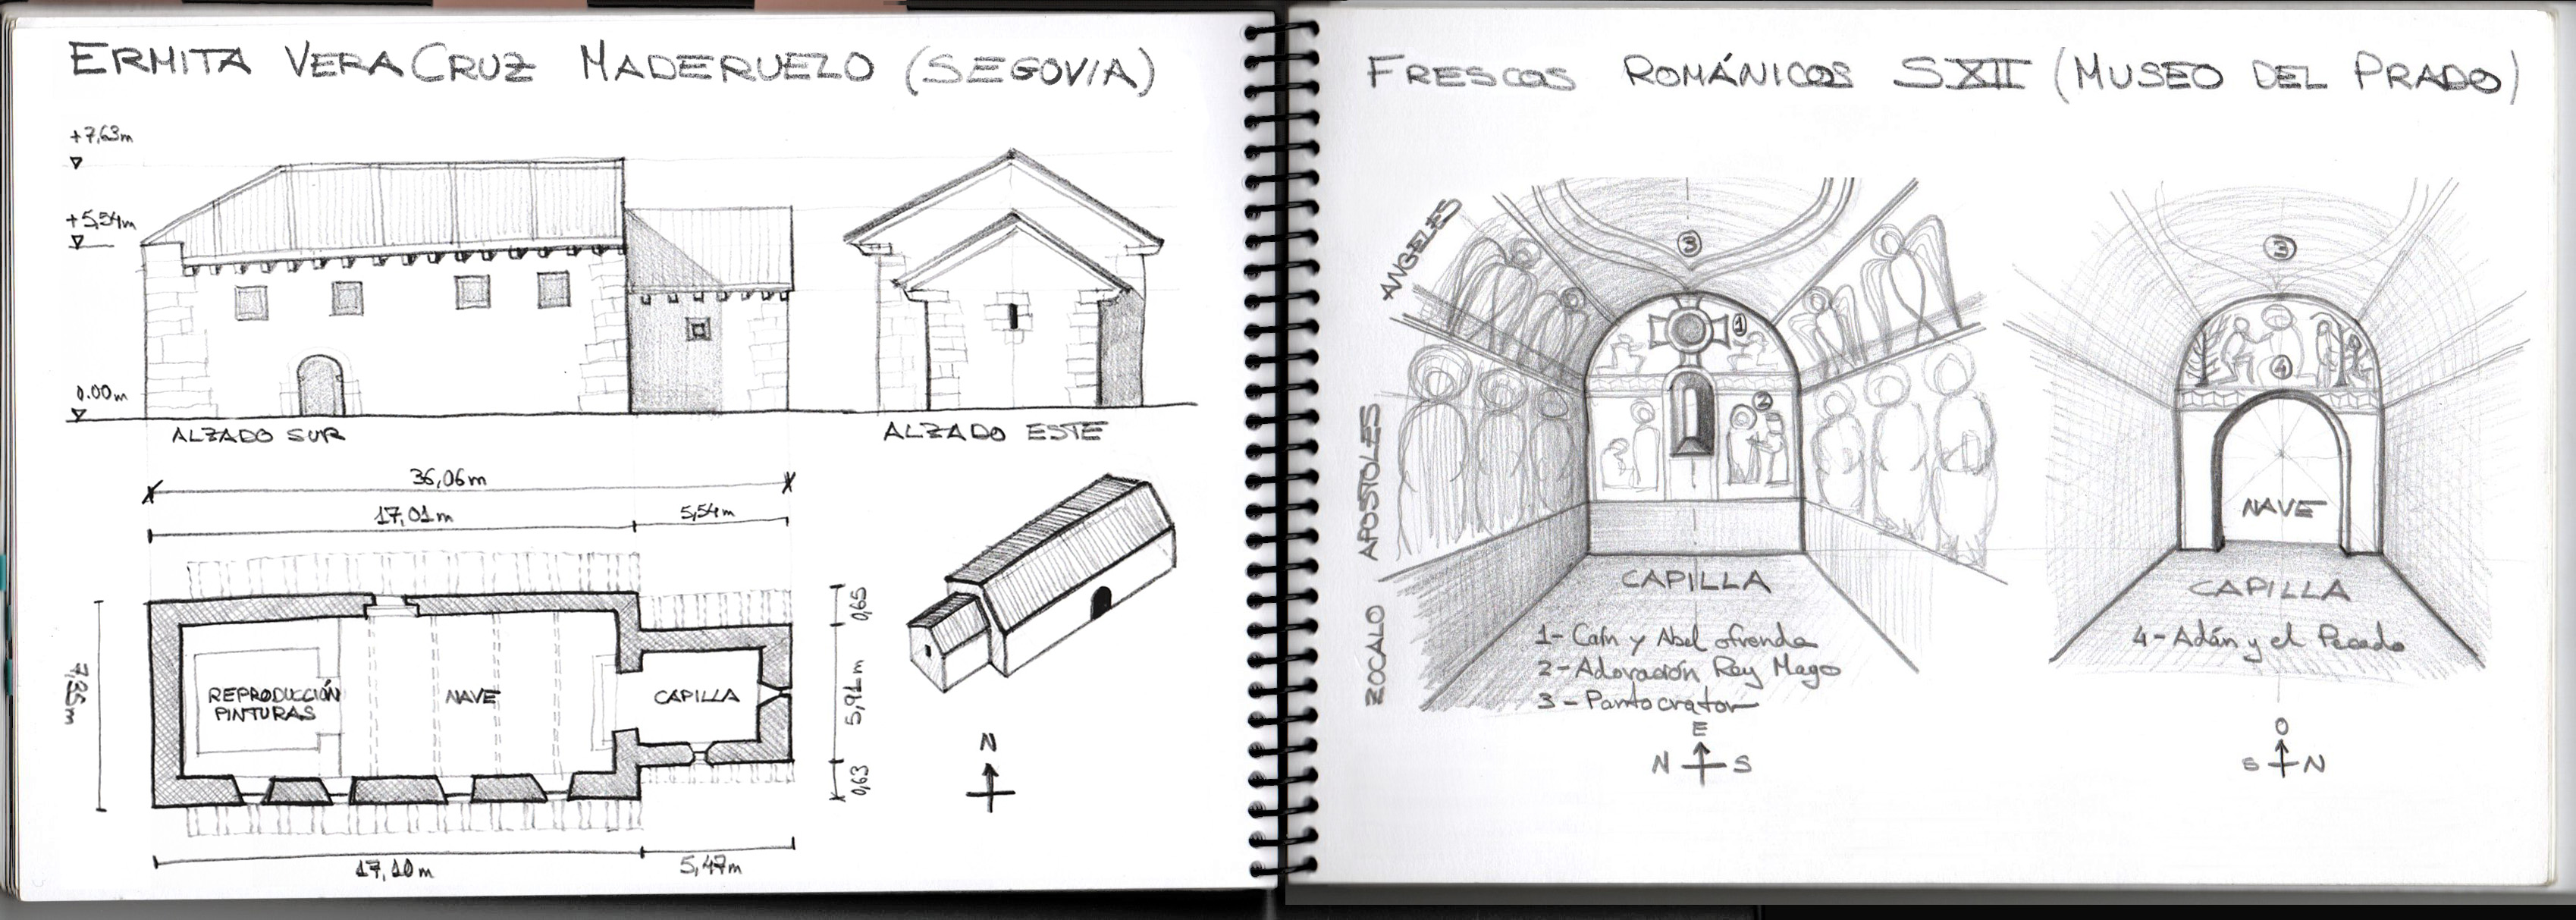 ERMITA VERA CRUZ MADERUELO (SEGOVIA)
+7,63m
+5,54m
0.00m
ALZADO SUR
ALZADO ESTE
36,06m
17,01m
5,54m
7,85m
REPRODUCCIÓN
PINTURAS
NAVE
CAPILLA
0,65
5,91m
0,63
N
17,10m
5,47m
FRESCOS ROMÁNICOS SXII (MUSEO DEL PRADO)
ANGELES
APOSTOLES
ZOCALO
3
1
2
CAPILLA
1- Caín y Abel ofrenda
2- Adoración Rey Mago
3- Pantocrator
E
N S
3
4
NAVE
CAPILLA
4- Adán y el Pecado
O
S N